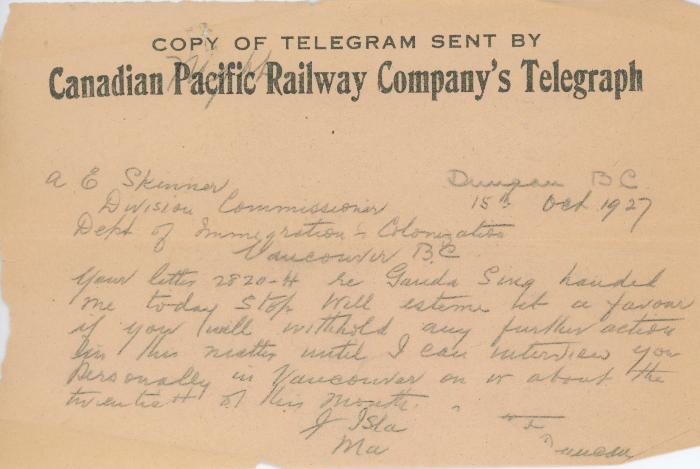 COPY OF TELEGRAM SENT BY
Canadian Pacific Railway Company's Telegraph
A E Skinner Duncan BC
Division Commissioner 15th Oct 1927
Dept of Immigration & Colonization
Vancouver B.C.
Your letter 2820-H re Ganda Sing handed
me today Stop Will esteme it a favour
if you will withhold any further action
in this matter until I can interview you
Personally in Vancouver on or about the
twentieth of this month.
Isla
Ma Duncan